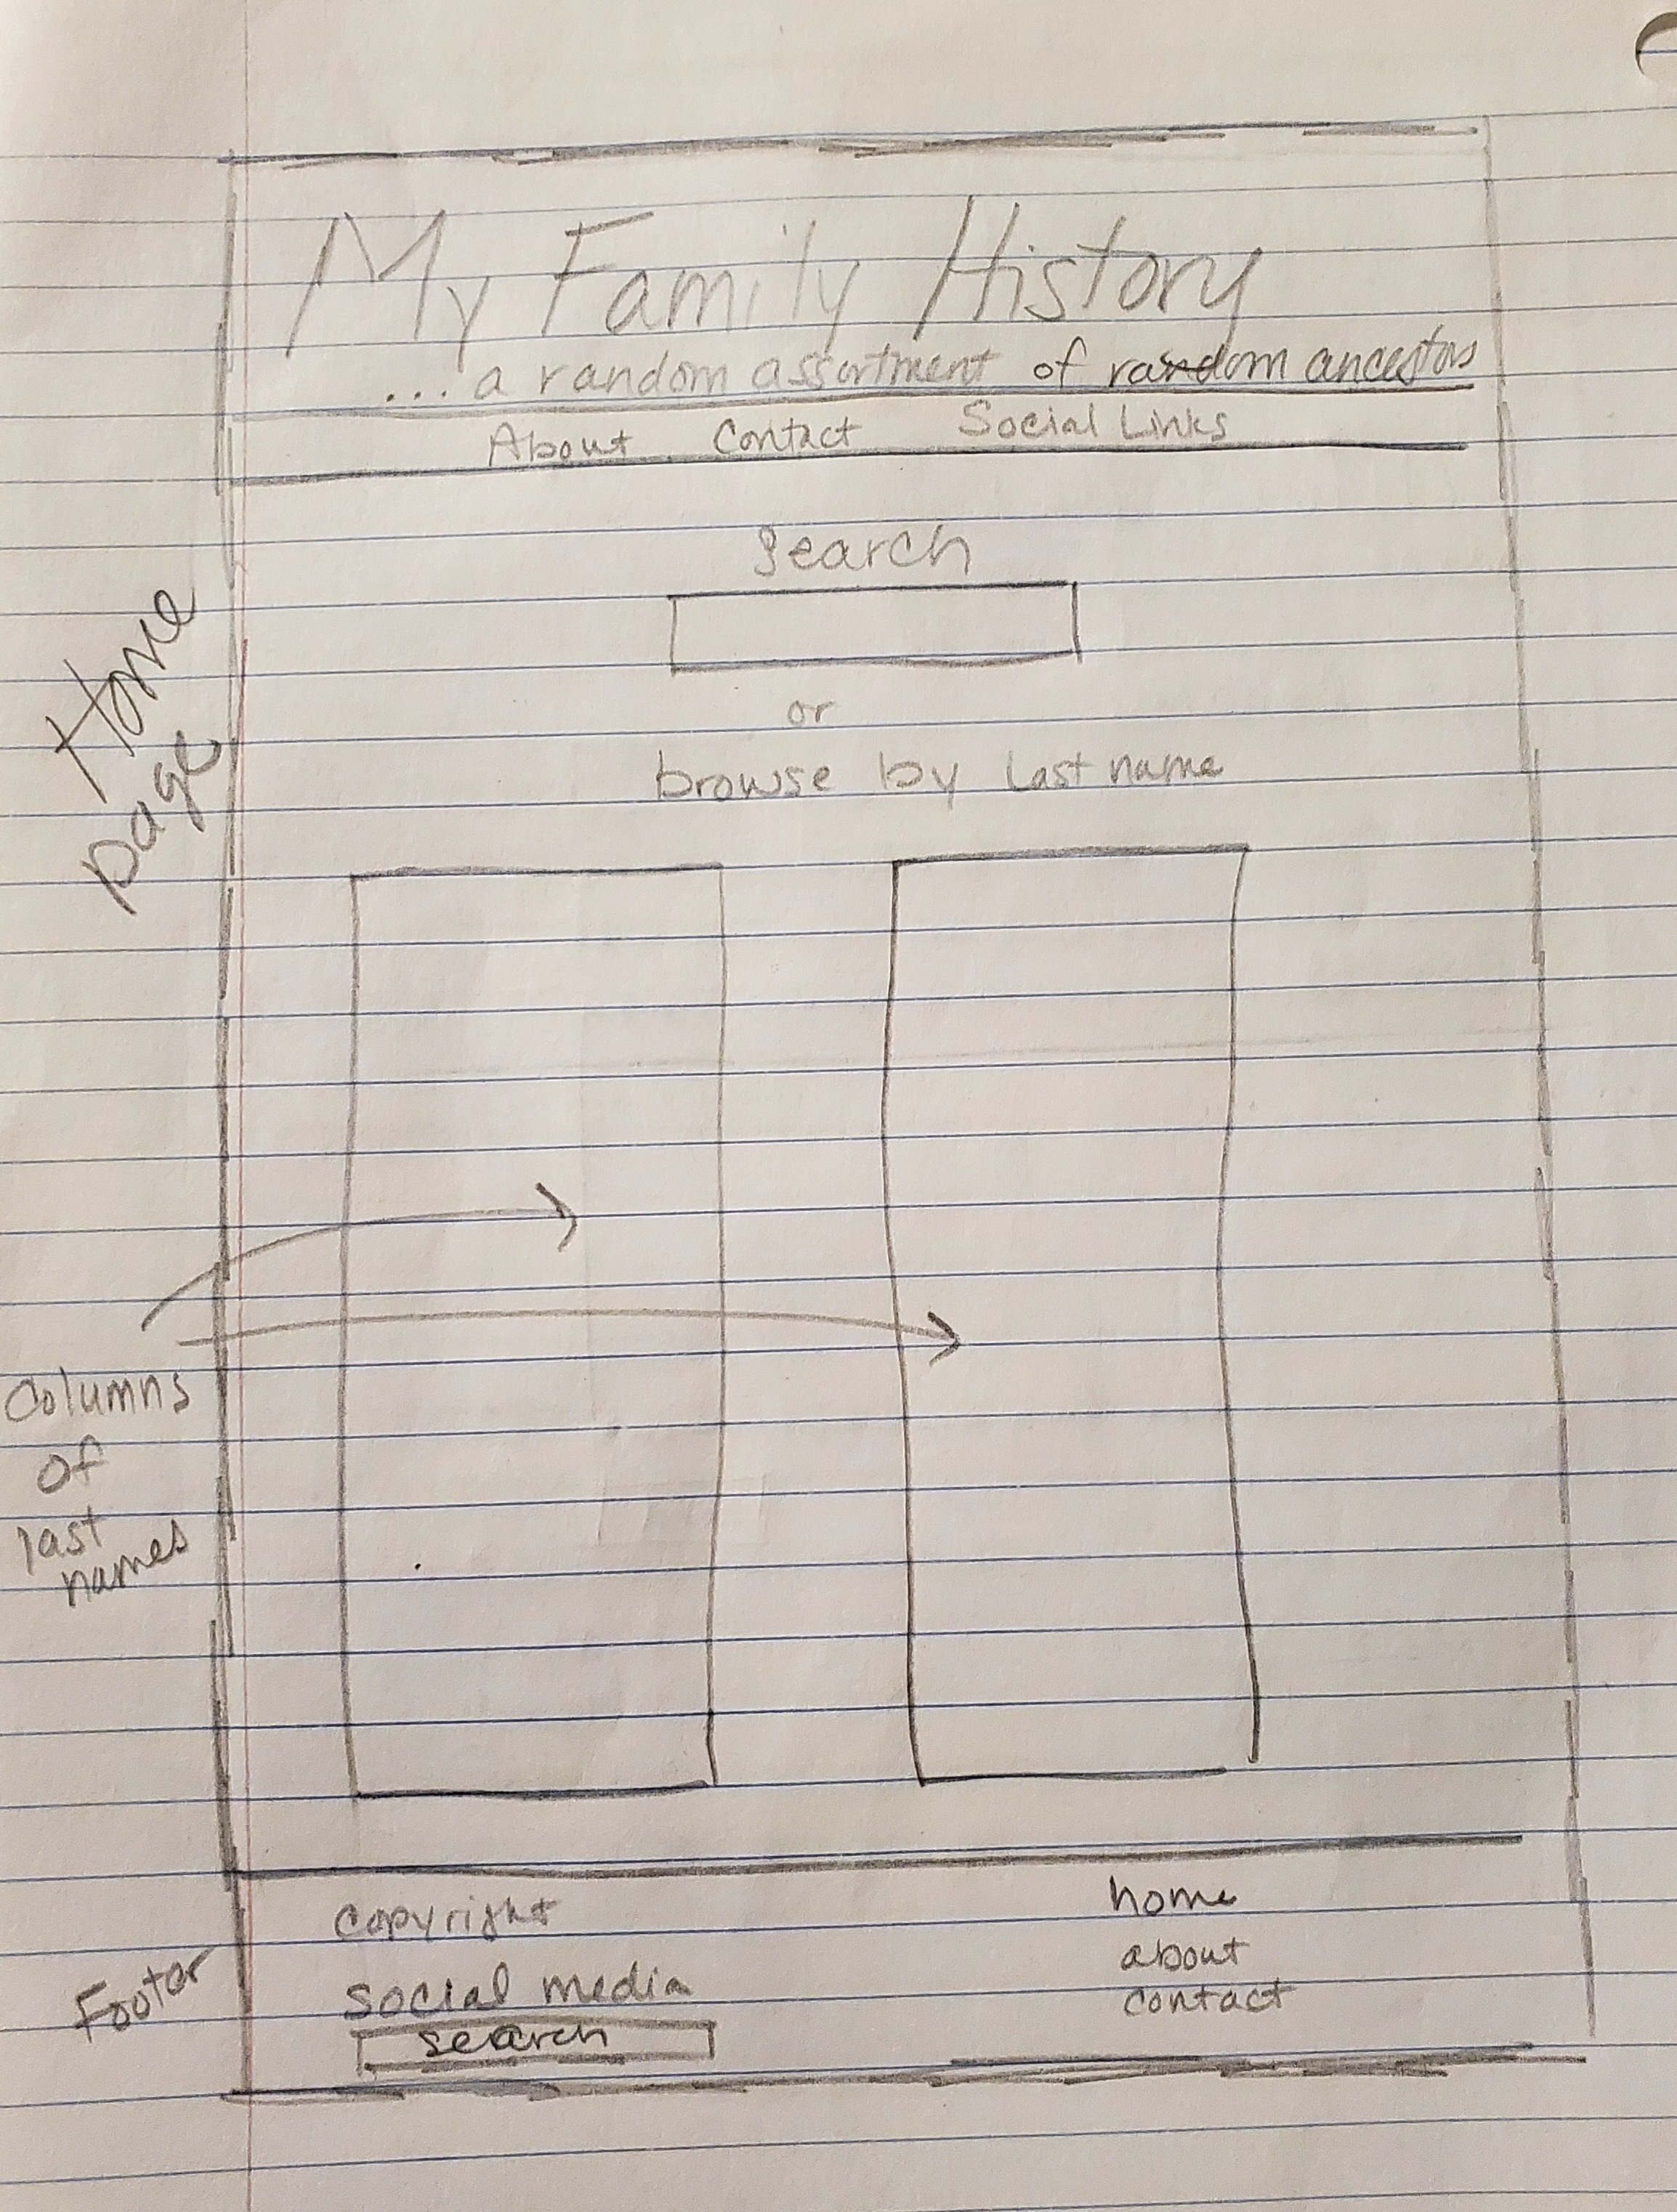 My Family History
.... a random assortment of random ancestors
About Contact Social Links
Search
or
browse by last name
Home
page
Columns
of
last
names
Footer
copyright
social media
search
home
about
contact